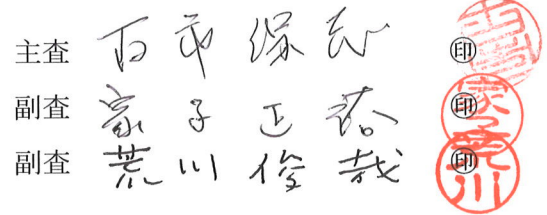 主査 百市 印
副査 家子 正裕 印
副査 荒川 俊哉 印